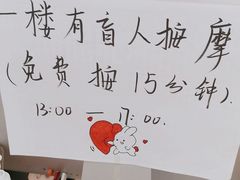 一楼有盲人按摩
(免费按15分钟).
13:00 — 17:00.